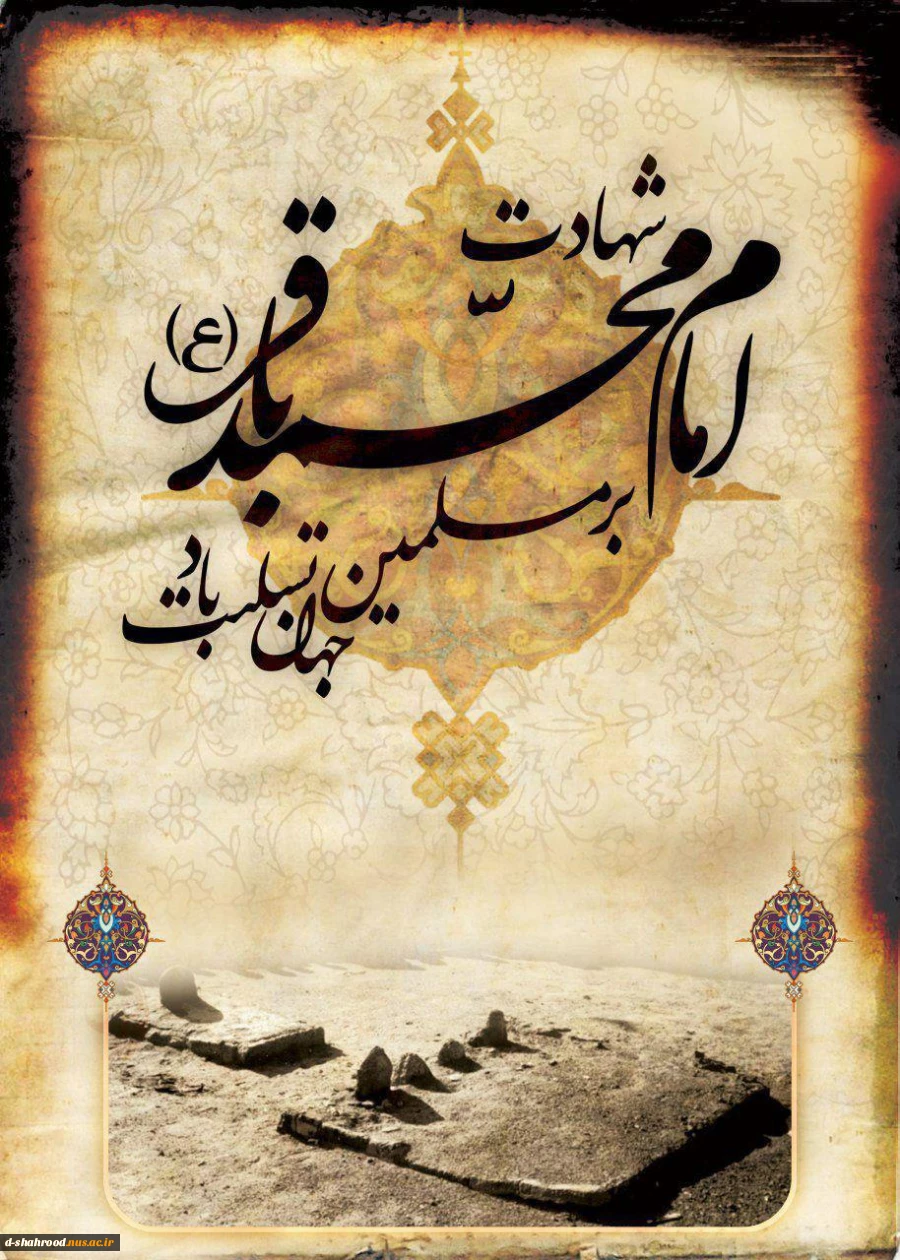 شهادت
امام محمد باقر (ع)
بر مسلمین
جهان تسلیت باد
d-shahrood.nus.ac.ir